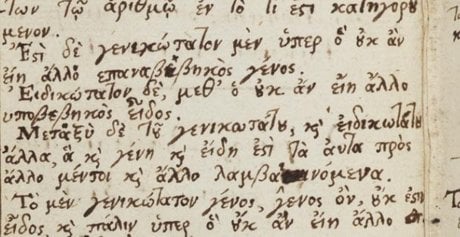 των τῷ ἀριθμῷ ἐν τῷ τί ἐστι κατηγορού
μενον.
Ἐστὶ δὲ γενικώτατον μὲν ὑπὲρ ὃ οὐκ ἂν
εἴη ἄλλο ἐπαναβεβηκὸς γένος.
Εἰδικώτατον δὲ, μεθ' ὃ οὐκ ἂν εἴη ἄλλο
ὑποβεβηκὸς εἶδος.
Μεταξὺ δὲ τοῦ γενικωτάτου, κỳ εἰδικωτάτου
ἄλλα, ἃ κỳ γένη κỳ εἴδη ἐστὶ τὰ αὐτὰ πρὸς
ἄλλο μέντοι κỳ ἄλλο λαμβανόμενα.
Τὸ μὲν γενικώτατον γένος, γένος ὂν, οὐκ ἐστιν
εἶδος κỳ πάλιν ὑπὲρ ὃ οὐκ ἂν εἴη ἄλλο